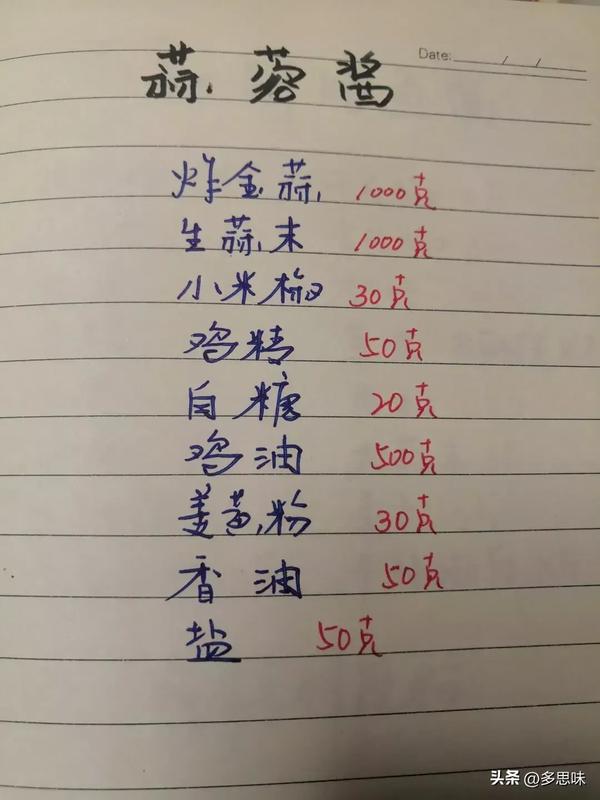 Date: / /
蒜蓉酱
炸金蒜 1000克
生蒜末 1000克
小米椒 30克
鸡精 50克
白糖 20克
鸡油 500克
姜黄粉 30克
香油 50克
盐 50克
头条 @多思味